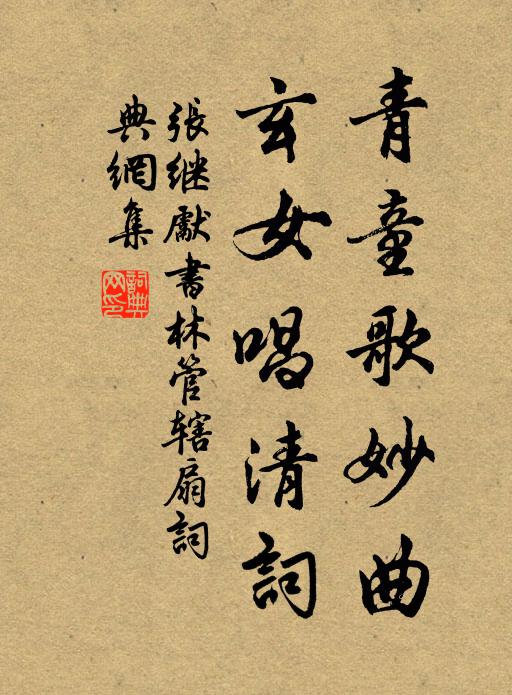 青童歌妙曲
玄女唱清詞
張继獻書林管辖扇詞
典網集
詞典网印